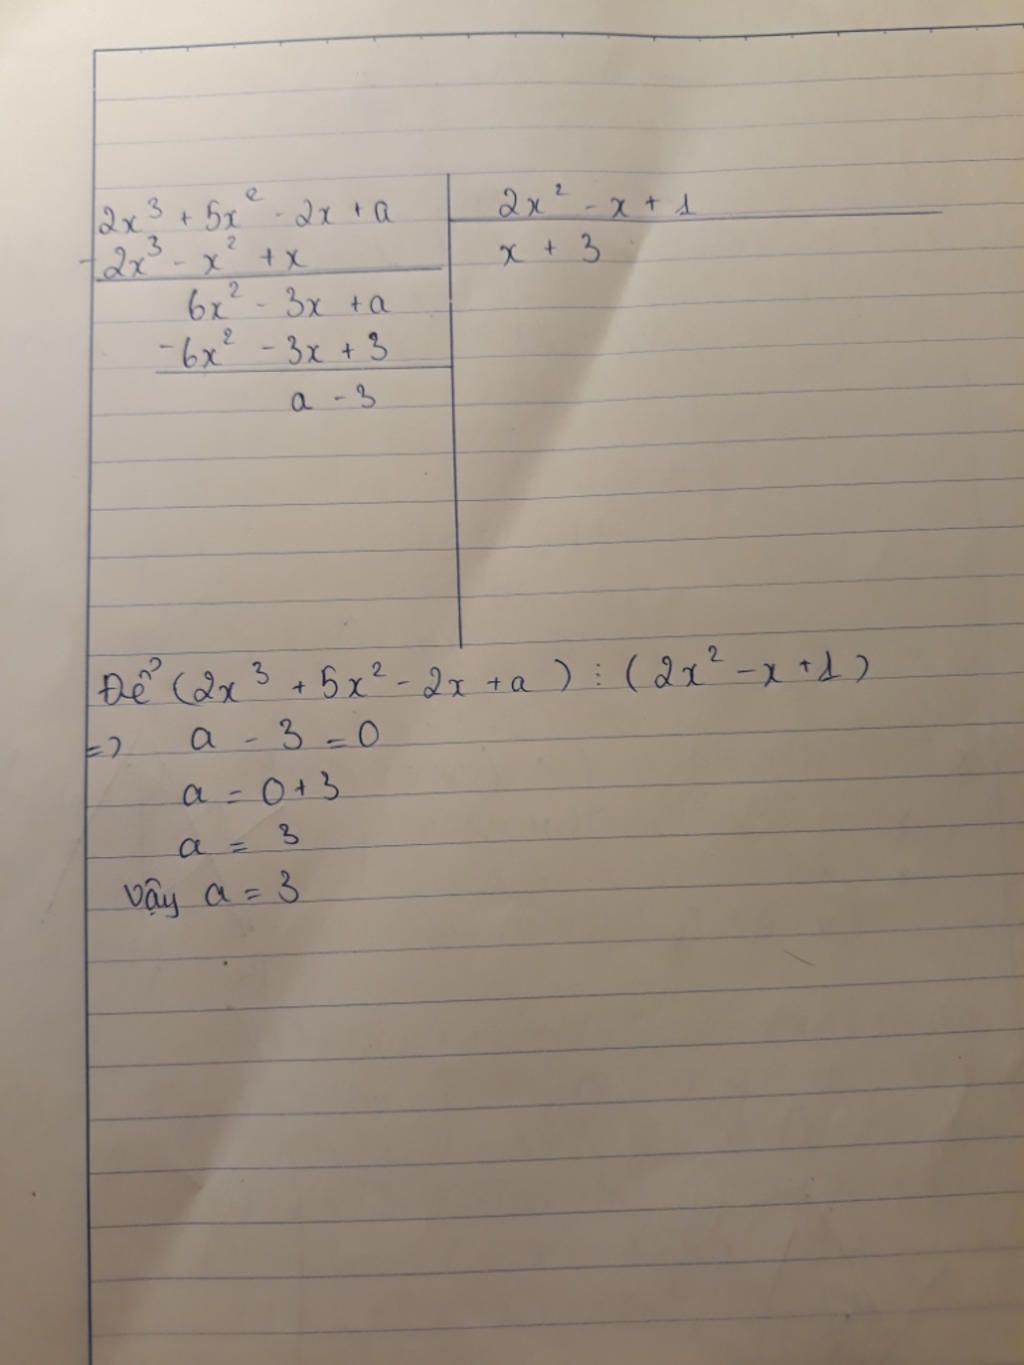 2x³ + 5x² - 2x + a
2x² - x + 1
- 2x³ - x² + x
x + 3
6x² - 3x + a
- 6x² - 3x + 3
a - 3
Để (2x³ + 5x² - 2x + a) ⋮ (2x² - x + 1)
=> a - 3 = 0
a = 0 + 3
a = 3
Vậy a = 3